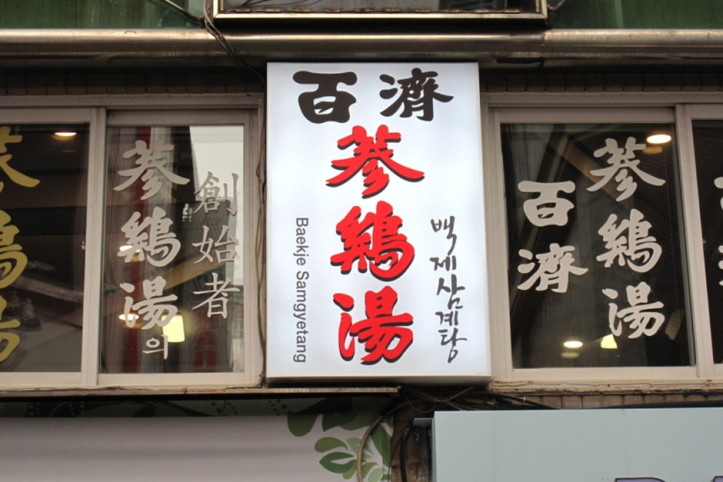 百濟
蔘鷄湯
백제삼계탕
Baekje Samgyetang
蔘鷄湯
蔘鷄湯의
創始者
百濟
蔘鷄湯